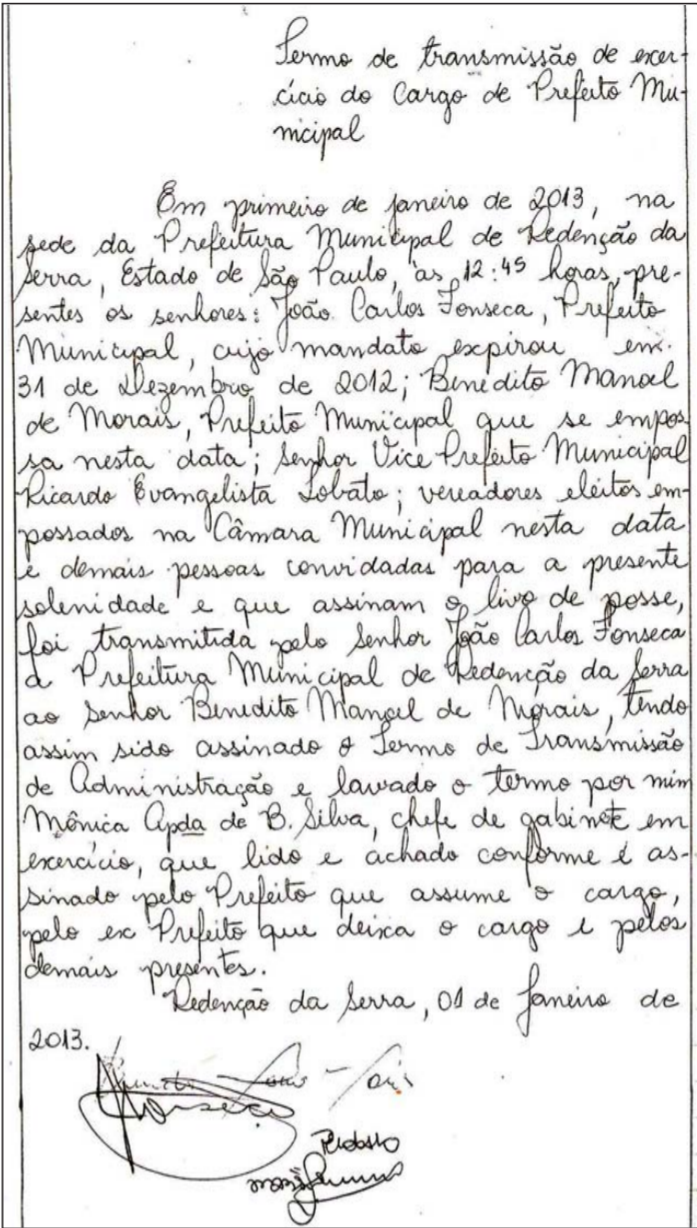 Termo de transmissão de exer-
cício do Cargo de Prefeito Mu-
nicipal
Em primeiro de janeiro de 2013, na
sede da Prefeitura Municipal de Redenção da
Serra, Estado de São Paulo, às 12:45 horas, pre-
sentes os senhores: João Carlos Fonseca, Prefeito
Municipal, cujo mandato expirou em
31 de Dezembro de 2012; Benedito Manoel
de Morais, Prefeito Municipal que se empos
sa nesta data; Senhor Vice Prefeito Municipal
Ricardo Evangelista Lobato; vereadores eleitos em-
possados na Câmara Municipal nesta data
e demais pessoas convidadas para a presente
solenidade e que assinam o livo de posse,
foi transmitida pelo Senhor João Carlos Fonseca
a Prefeitura Municipal de Redenção da Serra
ao Senhor Benedito Manoel de Morais, tendo
assim sido assinado o Termo de Transmissão
de Administração e lavado o termo por mim
Mônica Apda de B. Silva, chefe de gabinete em
exercício, que lido e achado conforme é as-
sinado pelo Prefeito que assume o cargo,
pelo ex Prefeito que deixa o cargo e pelos
demais presentes.
Redenção da Serra, 01 de Janeiro de
2013.
Fonseca